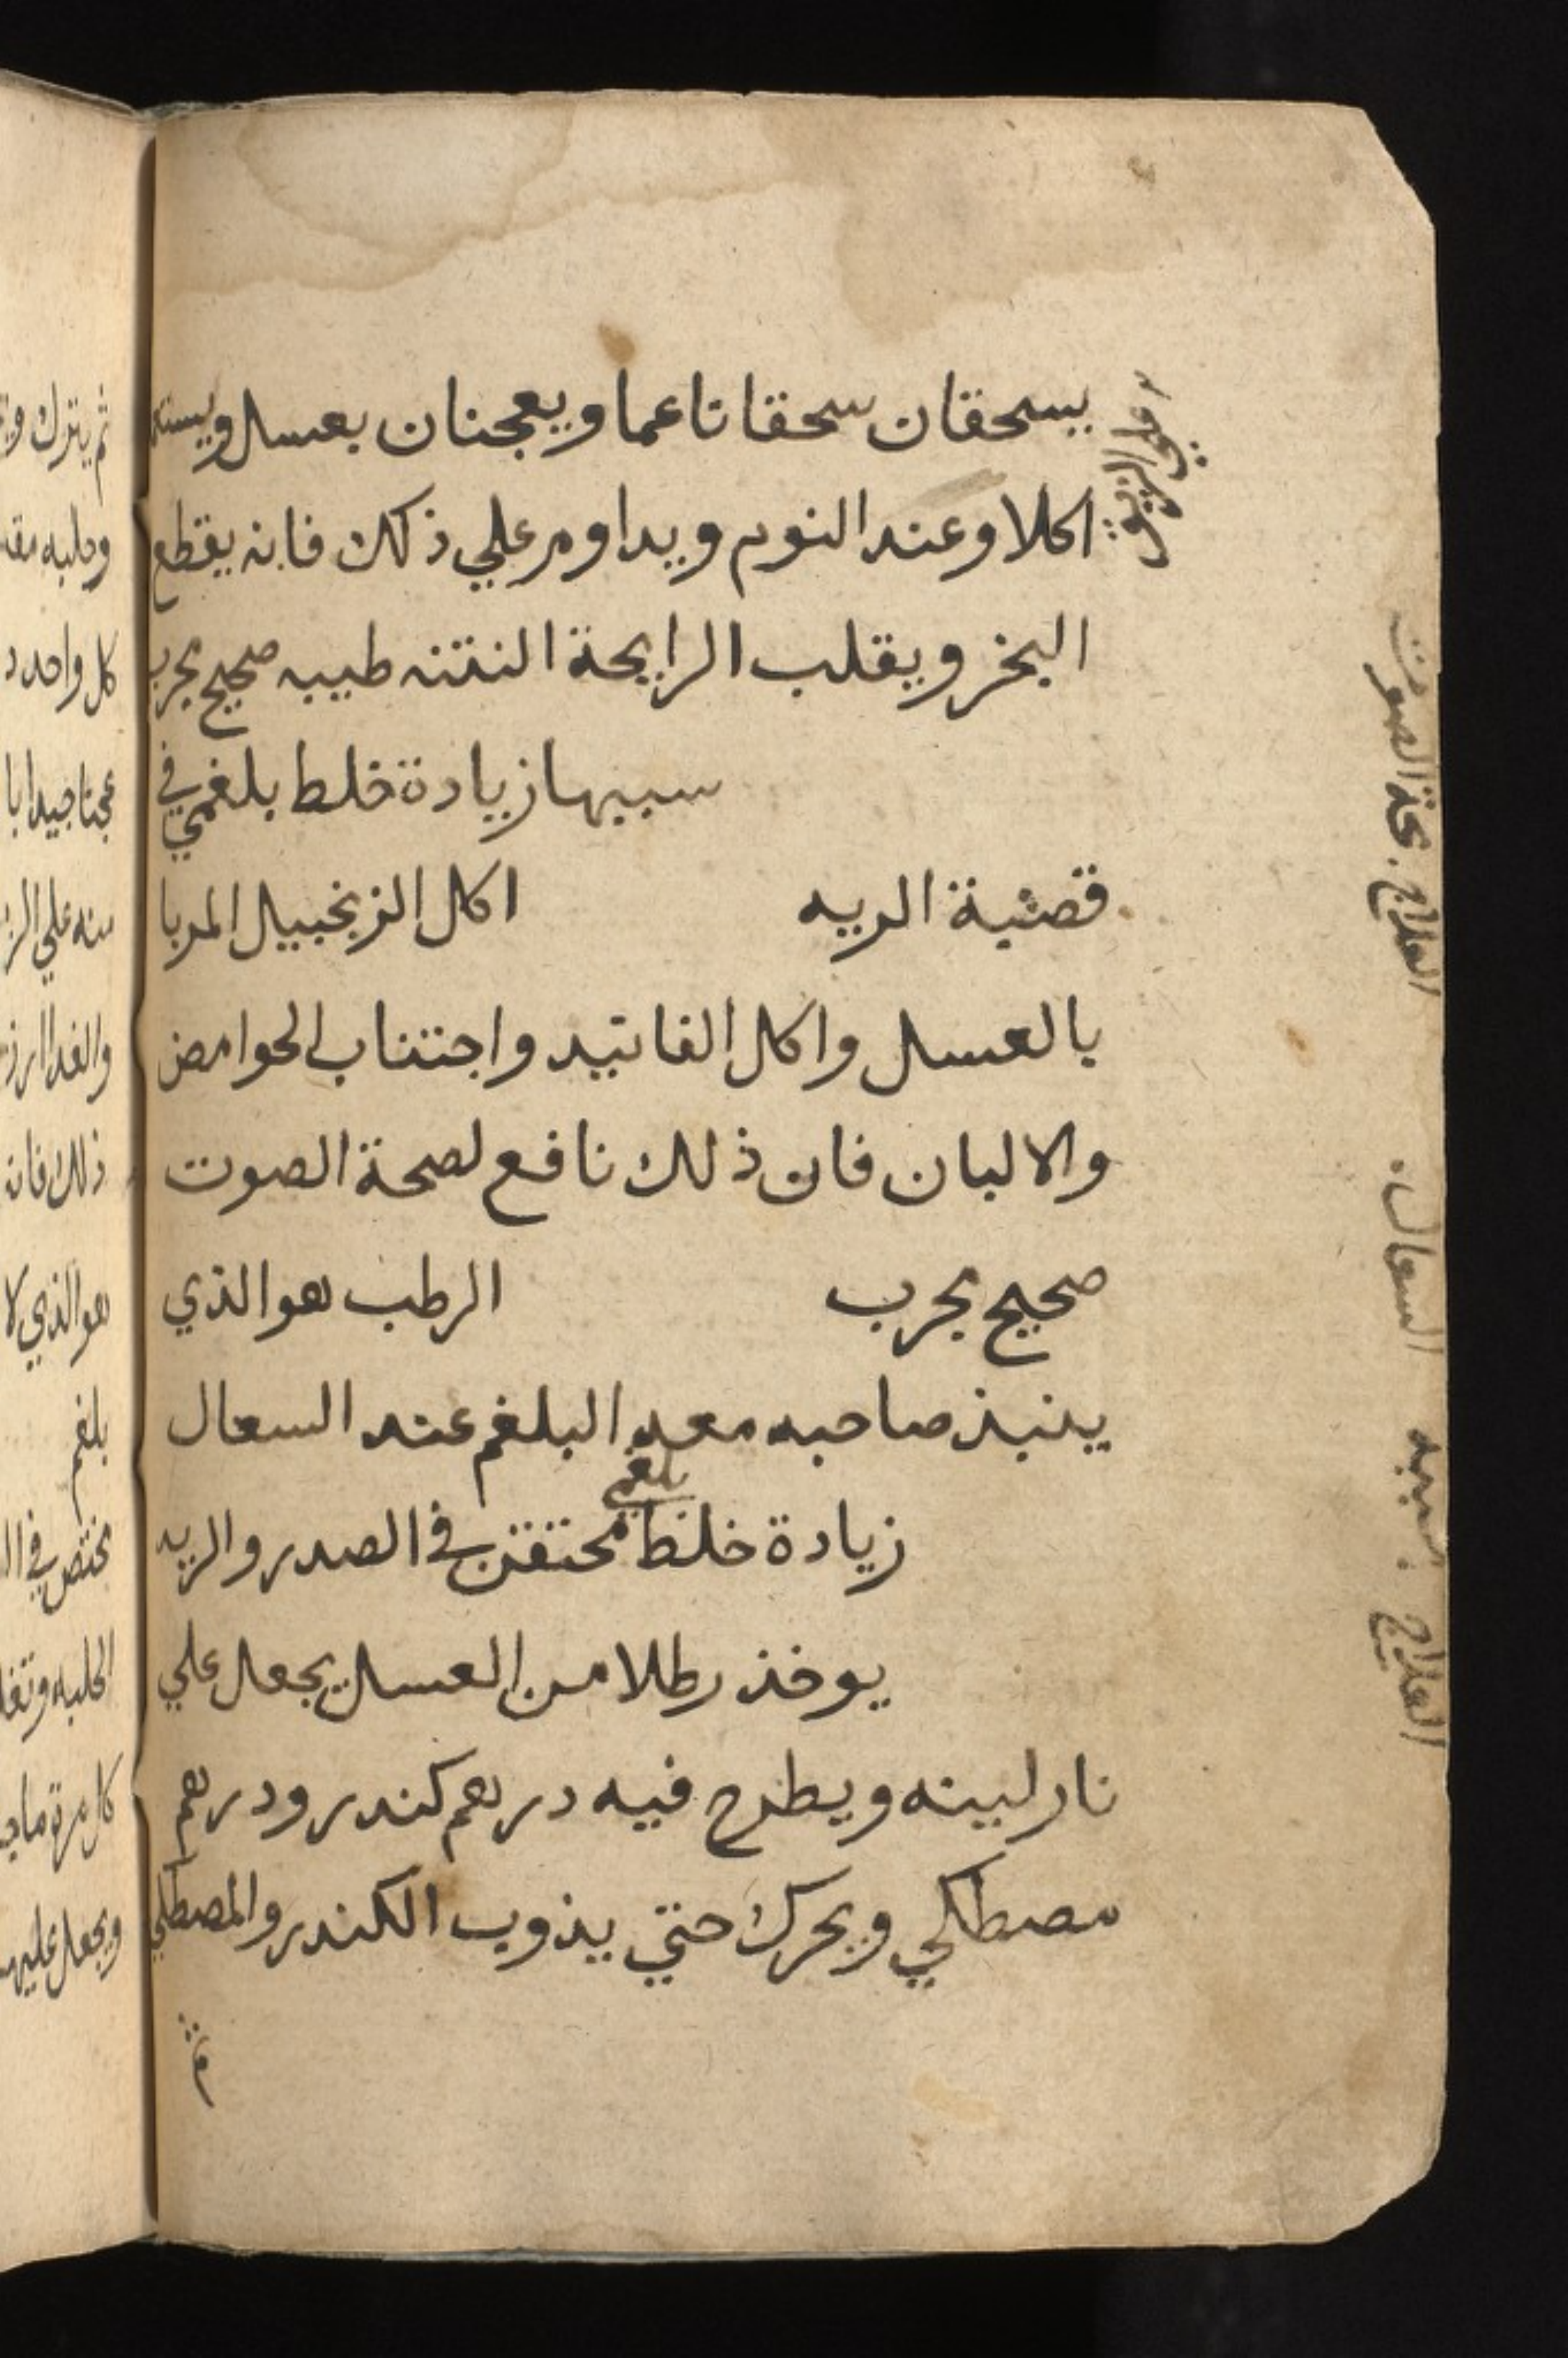 يسحقان سحقا ناعما ويعجنان بعسل ويستعمل
اكلا وعند النوم ويداوم علي ذلك فانه يقطع
البخر ويقلب الرايحة النتنه طيبه صحيح مجرب
سببها زيادة خلط بلغمي في
قصبة الريه اكل الزنجبيل المربا
بالعسل واكل الفانيد واجتناب الحوامض
والالبان فان ذلك نافع لصحة الصوت
صحيح مجرب الرطب هو الذي
ينبذ صاحبه معه البلغم عند السعال
بلغمي
زيادة خلط محتقن في الصدر والريه
يوخذ رطلا من العسل يجعل علي
نار لينه ويطرح فيه درهم كندر ودرهم
مصطكي ويحرك حتي يذوب الكندر والمصطكي
ثم
بحة الصوت
العلاج
السعال
سببه
العلاج